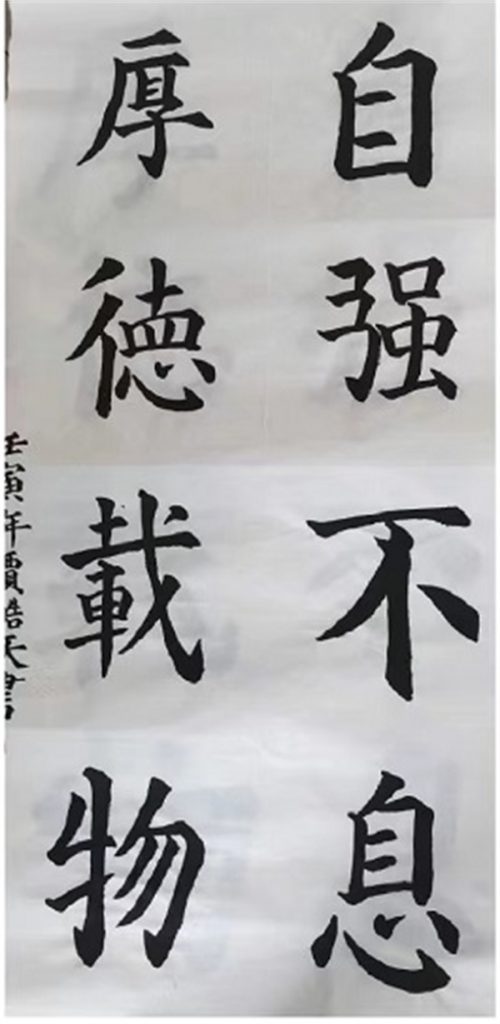 自强不息
厚德載物
壬寅年賈皓天書